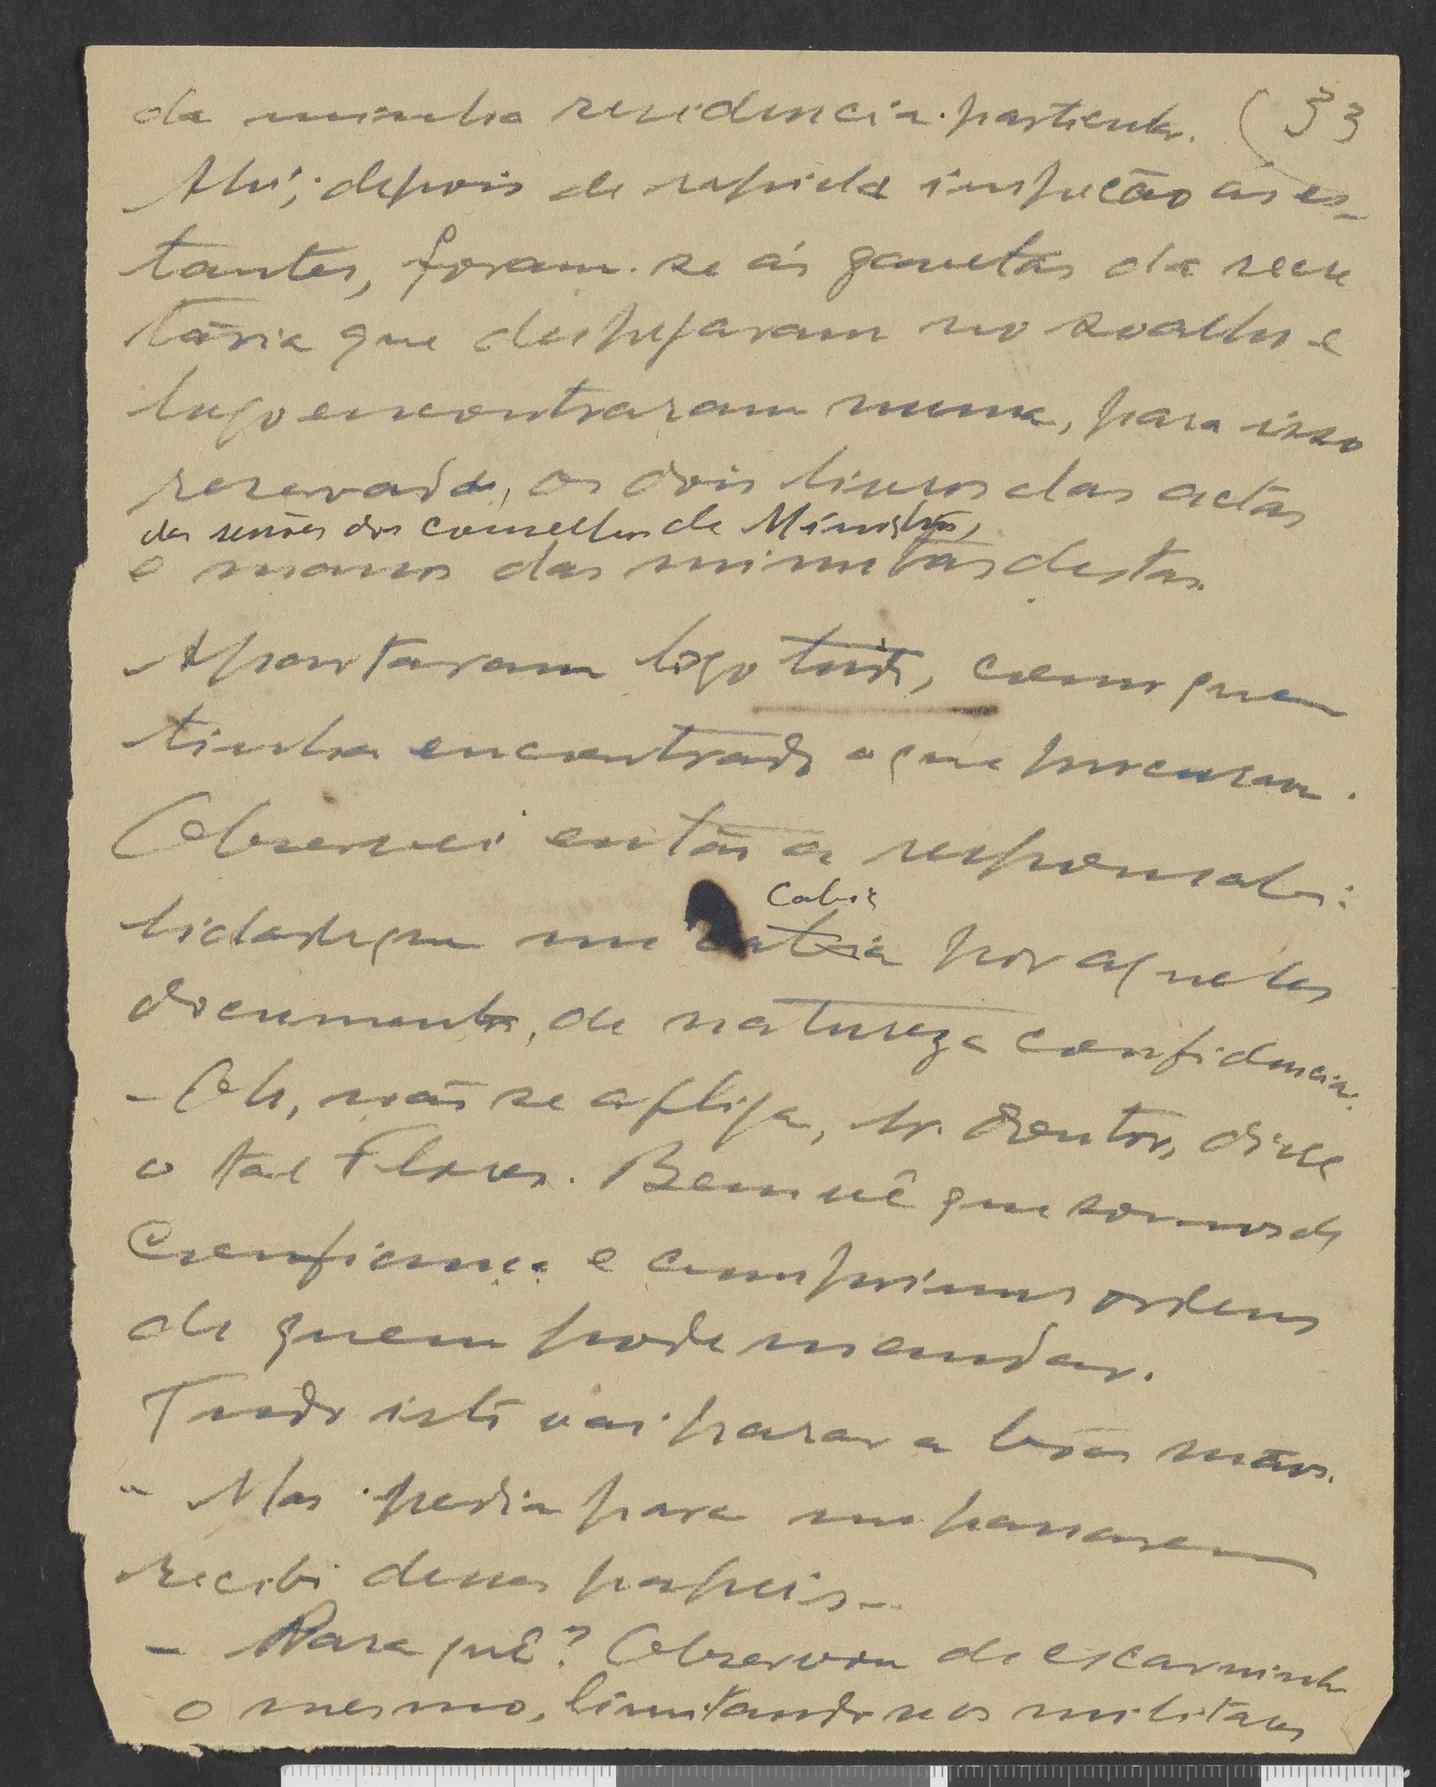 da minha residencia particular. (33
Ahi, depois de rapida inspeção ás es-
tantes, foram-se ás gavetas da secre
tária que despejaram no soalho e
logo encontraram numa, para isso
reservada, os dois livros das actas
das sessões dos conselhos de Ministros,
e massos das minutas destas.
Apontaram logo tudo, como quem
tinha encontrado o que procurava.
Observei então a responsabi-
lidade que me cabia por aqueles
documentos, de natureza confidencial.
- Oh, não se aflija, sr. doutor, disse
o tal Flores. Bem vê que somos de
confiança e cumprimos ordens
de quem pode mandar.
Tudo isto vai parar a bôas mãos.
- Mas pedia para me passarem
recibo desses papeis...
- Para quê? Observou de escarninho
o mesmo, limitando-se os militares